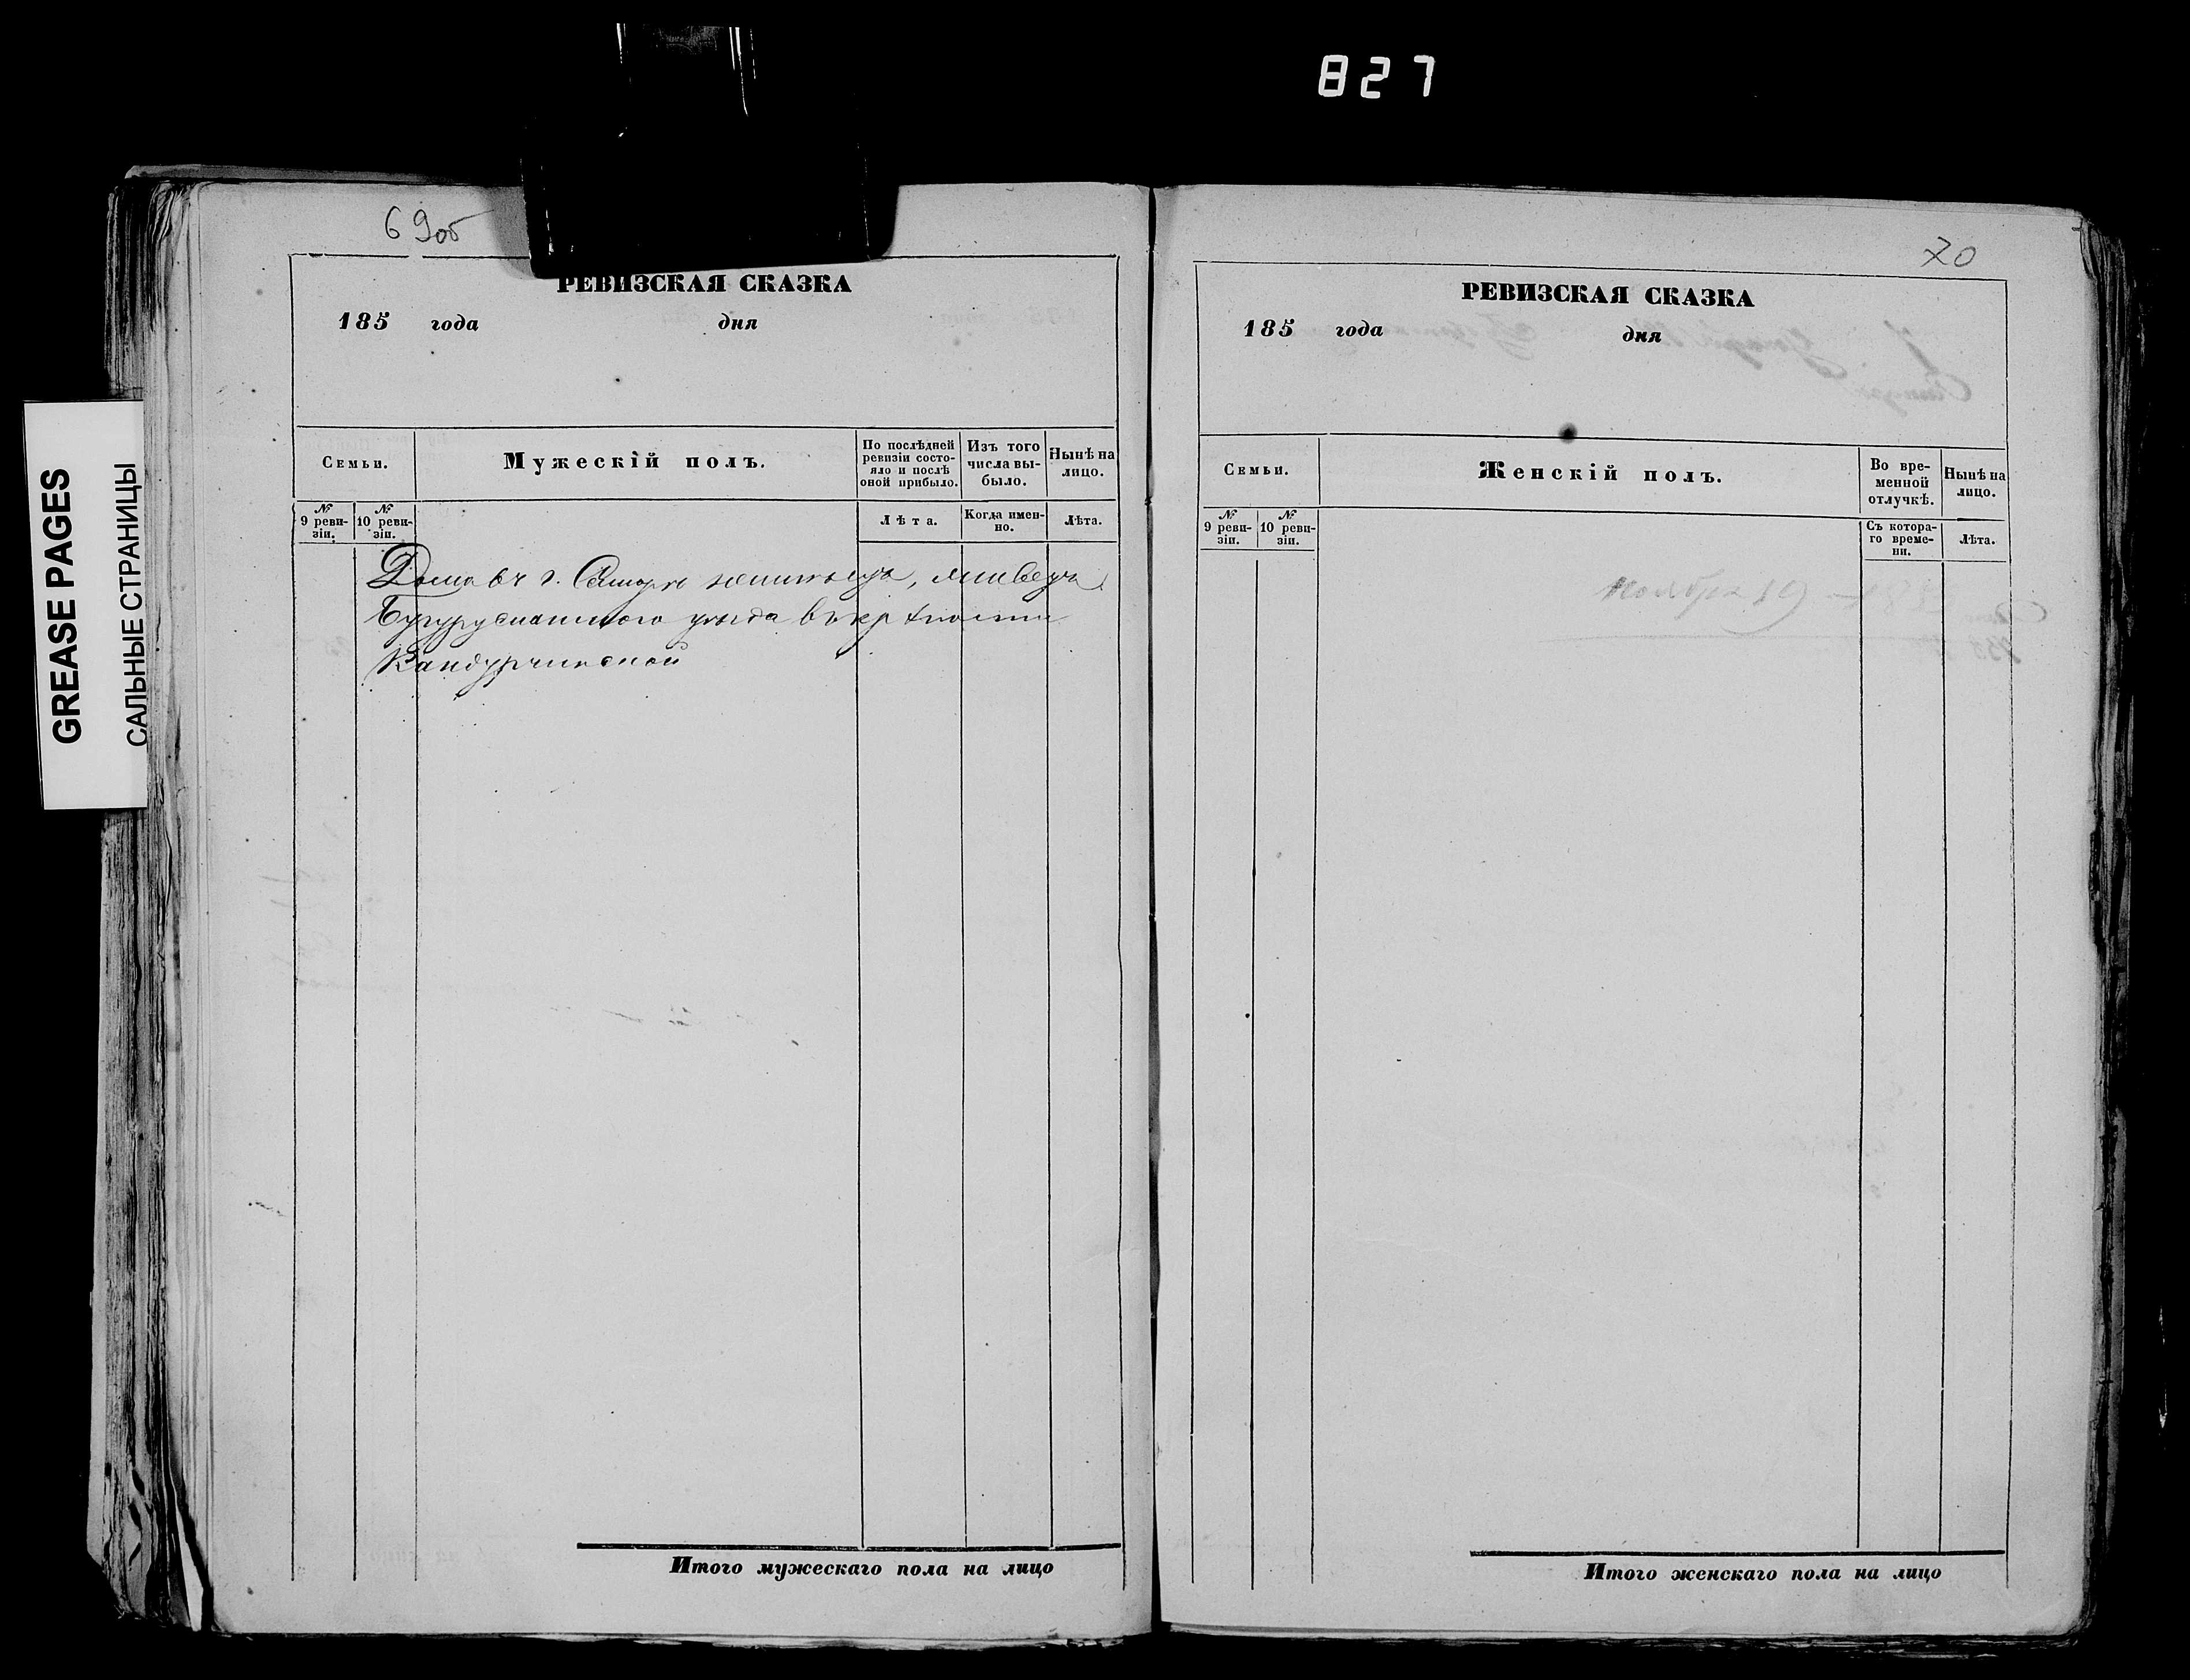 827
69об
РЕВИЗСКАЯ СКАЗКА
185 года дня
Семьи.
Мужескій полъ.
По послѣдней ревизіи состо-
яло и послѣ оной прибыло.
Изъ того числа вы-
было.
Нынѣ на лицо.
№ 9 реви-
зіи.
№ 10 реви-
зіи.
Лѣта.
Когда имен-
но.
Лѣта.
Дома въ г. Самарѣ
Бугурусланскаго уѣзда въ крѣпости
Кандурчинской
Итого мужескаго пола на лицо
70
РЕВИЗСКАЯ СКАЗКА
185 года дня
Семьи.
Женскій полъ.
Во вре-
менной
отлучкѣ.
Нынѣ на
лицо.
№ 9 реви-
зіи.
№ 10 реви-
зіи.
Съ котора-
го време-
ни.
Лѣта.
ноября 19
Итого женскаго пола на лицо
GREASE PAGES
САЛЬНЫЕ СТРАНИЦЫ